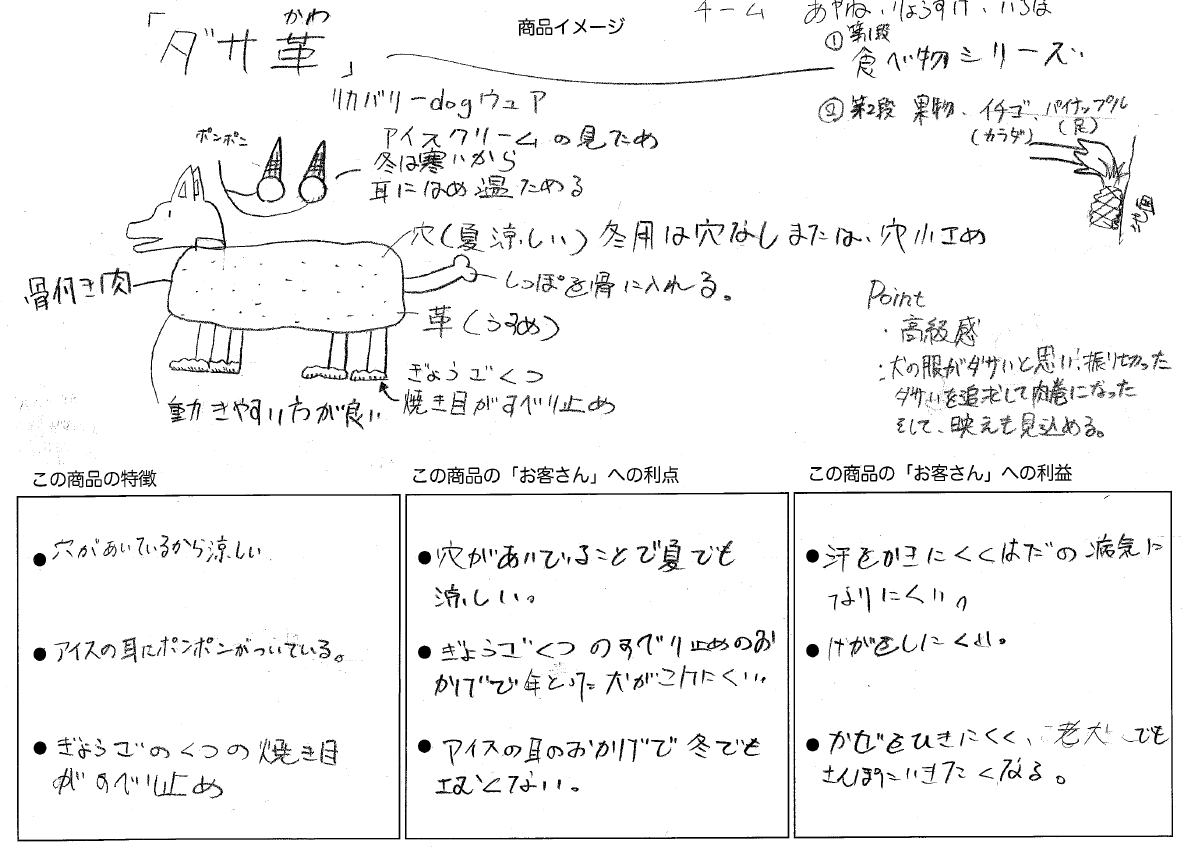 チーム あやね、りょうすけ、いろは
商品イメージ
かわ
「ダサ革」
①第1段
食べ物シリーズ
リカバリーdogウェア
②第2段 果物、イチゴ、パイナップル
(カラダ) (足)
ポンポン
アイスクリームの見ため
冬は寒いから
耳にはめ温ためる
地面
穴(夏涼しい) 冬用は穴なしまたは、穴小さめ
骨付き肉
しっぽを骨に入れる。
革(うすめ)
Point
・高級感
・犬の服がダサいと思い、振り切った
ダサいを追求して肉巻になった
そして、映えも見込める。
ぎょうざくつ
焼き目がすべり止め
動きやすい方が良い
この商品の特徴
●穴があいているから涼しい
●アイスの耳にポンポンがついている。
●ぎょうざのくつの焼き目
がすべり止め
この商品の「お客さん」への利点
●穴があいていることで夏でも
涼しい。
●ぎょうざくつのすべり止めのお
かげで年とった犬がこけにくい。
●アイスの耳のおかげで冬でも
さむくない。
この商品の「お客さん」への利益
●汗をかきにくくはだの病気に
なりにくい。
●けがをしにくい。
●かぜをひきにくく、老犬でも
さんぽにいきたくなる。